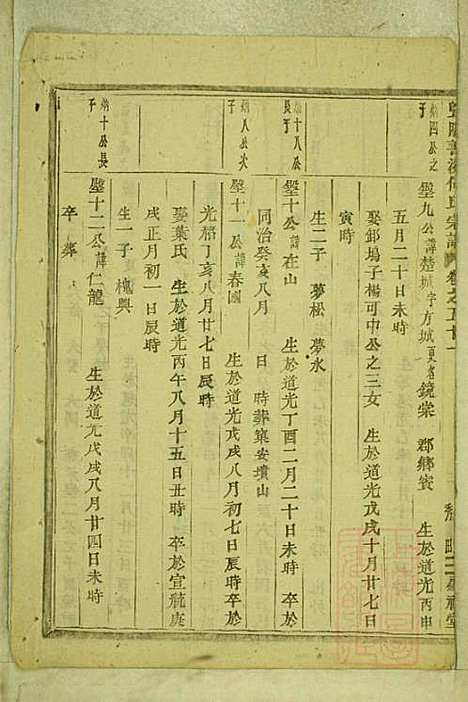 何氏宗譜 卷之五十一
炳四公之子
璧九公諱楚城字方城更名鏡棠 郡鄉賓 生於道光丙申
五月二十日未時
娶邨塢子楊可中公之三女 生於道光戊戌十月廿七日
寅時
生二子 夢松 夢永
炳十八公長子
璧十公諱在山 生於道光丁酉二月二十日未時 卒於
同治癸亥八月 日 時葬箬安墳山
炳八公次子
璧十一公諱春國 生於道光戊戌八月初七日辰時卒於
光緒丁亥八月廿七日辰時
娶葉氏 生於道光丙午八月十五日丑時 卒於宣統庚
戌正月初一日辰時
生一子 槐興
炳十公長子
璧十二公諱仁龍 生於道光戊戌八月廿四日未時
卒 葬